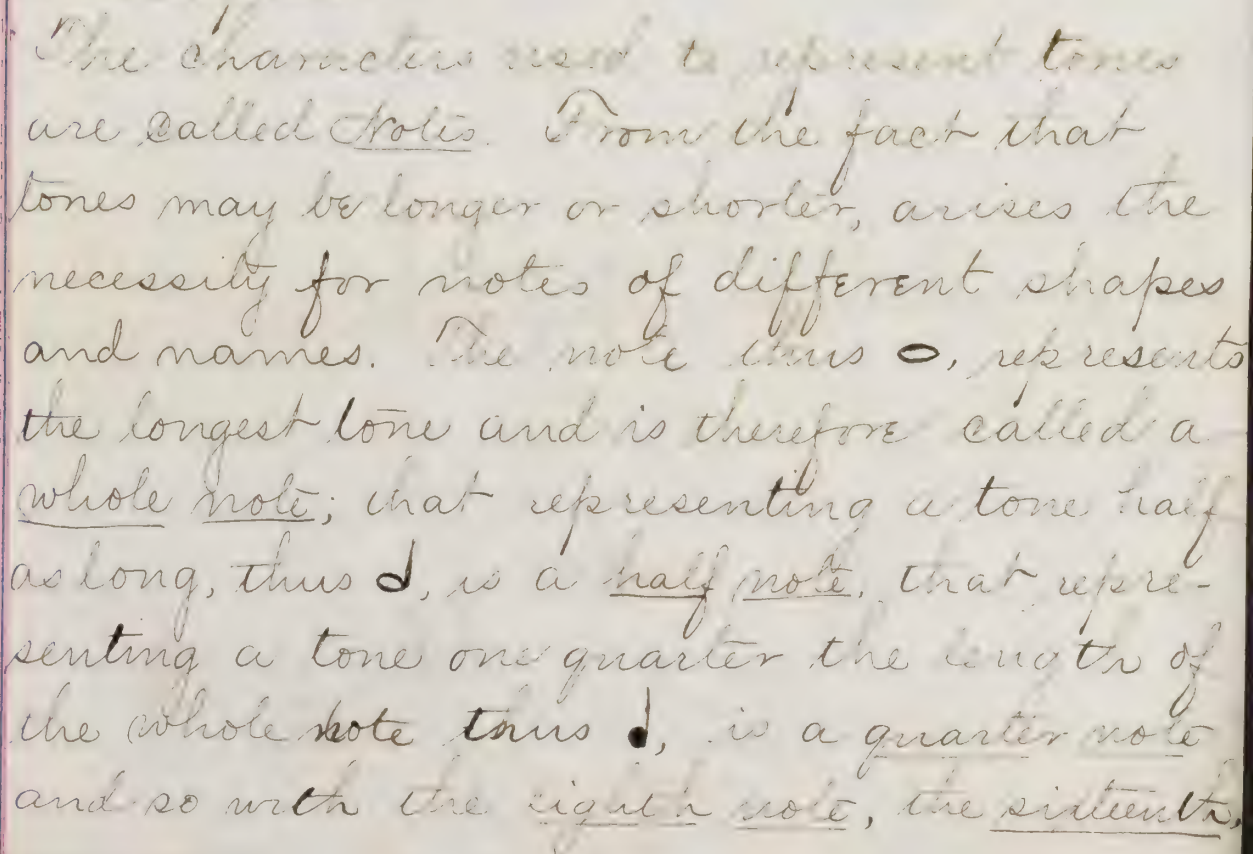 The characters used to represent tones
are called Notes. From the fact that
tones may be longer or shorter, arises the
necessity for notes of different shapes
and names. The note thus 𝅝, represents
the longest tone and is therefore called a
whole note; that representing a tone half
as long, thus 𝅗𝅥, is a half note, that repre-
senting a tone one quarter the length of
the whole note thus ♩, is a quarter note
and so with the eighth note, the sixteenth,